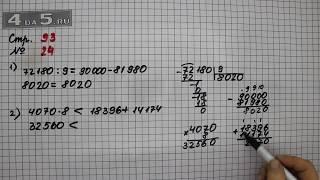 4DA5.RU
Стр. 93
№ 24
1)
72180 : 9 = 90000 - 81980
8020 = 8020
2) 4070 · 8 < 18396 + 14174
32560 <
72180 | 9
72 8020
18
18
0
90000
81980
8020
4070
8
32560
18396